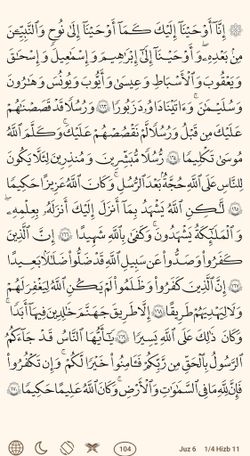 ۞ إِنَّآ أَوْحَيْنَآ إِلَيْكَ كَمَآ أَوْحَيْنَآ إِلَىٰ نُوحٍ وَٱلنَّبِيِّـۧنَ
مِنۢ بَعْدِهِۦ ۚ وَأَوْحَيْنَآ إِلَىٰٓ إِبْرَٰهِيمَ وَإِسْمَٰعِيلَ وَإِسْحَٰقَ
وَيَعْقُوبَ وَٱلْأَسْبَاطِ وَعِيسَىٰ وَأَيُّوبَ وَيُونُسَ وَهَٰرُونَ
وَسُلَيْمَٰنَ ۚ وَءَاتَيْنَا دَاوُۥدَ زَبُورًا ١٦٣ وَرُسُلًا قَدْ قَصَصْنَٰهُمْ
عَلَيْكَ مِن قَبْلُ وَرُسُلًا لَّمْ نَقْصُصْهُمْ عَلَيْكَ ۚ وَكَلَّمَ ٱللَّهُ
مُوسَىٰ تَكْلِيمًا ١٦٤ رُّسُلًا مُّبَشِّرِينَ وَمُنذِرِينَ لِئَلَّا يَكُونَ
لِلنَّاسِ عَلَى ٱللَّهِ حُجَّةٌۢ بَعْدَ ٱلرُّسُلِ ۚ وَكَانَ ٱللَّهُ عَزِيزًا حَكِيمًا
١٦٥ لَّٰكِنِ ٱللَّهُ يَشْهَدُ بِمَآ أَنزَلَ إِلَيْكَ ۖ أَنزَلَهُۥ بِعِلْمِهِۦ ۖ
وَٱلْمَلَٰٓئِكَةُ يَشْهَدُونَ ۚ وَكَفَىٰ بِٱللَّهِ شَهِيدًا ١٦٦ إِنَّ ٱلَّذِينَ
كَفَرُوا۟ وَصَدُّوا۟ عَن سَبِيلِ ٱللَّهِ قَدْ ضَلُّوا۟ ضَلَٰلًۢا بَعِيدًا
١٦٧ إِنَّ ٱلَّذِينَ كَفَرُوا۟ وَظَلَمُوا۟ لَمْ يَكُنِ ٱللَّهُ لِيَغْفِرَ لَهُمْ
وَلَا لِيَهْدِيَهُمْ طَرِيقًا ١٦٨ إِلَّا طَرِيقَ جَهَنَّمَ خَٰلِدِينَ فِيهَآ أَبَدًا ۚ
وَكَانَ ذَٰلِكَ عَلَى ٱللَّهِ يَسِيرًا ١٦٩ يَٰٓأَيُّهَا ٱلنَّاسُ قَدْ جَآءَكُمُ
ٱلرَّسُولُ بِٱلْحَقِّ مِن رَّبِّكُمْ فَـَٔامِنُوا۟ خَيْرًا لَّكُمْ ۚ وَإِن تَكْفُرُوا۟
فَإِنَّ لِلَّهِ مَا فِى ٱلسَّمَٰوَٰتِ وَٱلْأَرْضِ ۚ وَكَانَ ٱللَّهُ عَلِيمًا حَكِيمًا ١٧٠
104 Juz 6 1/4 Hizb 11